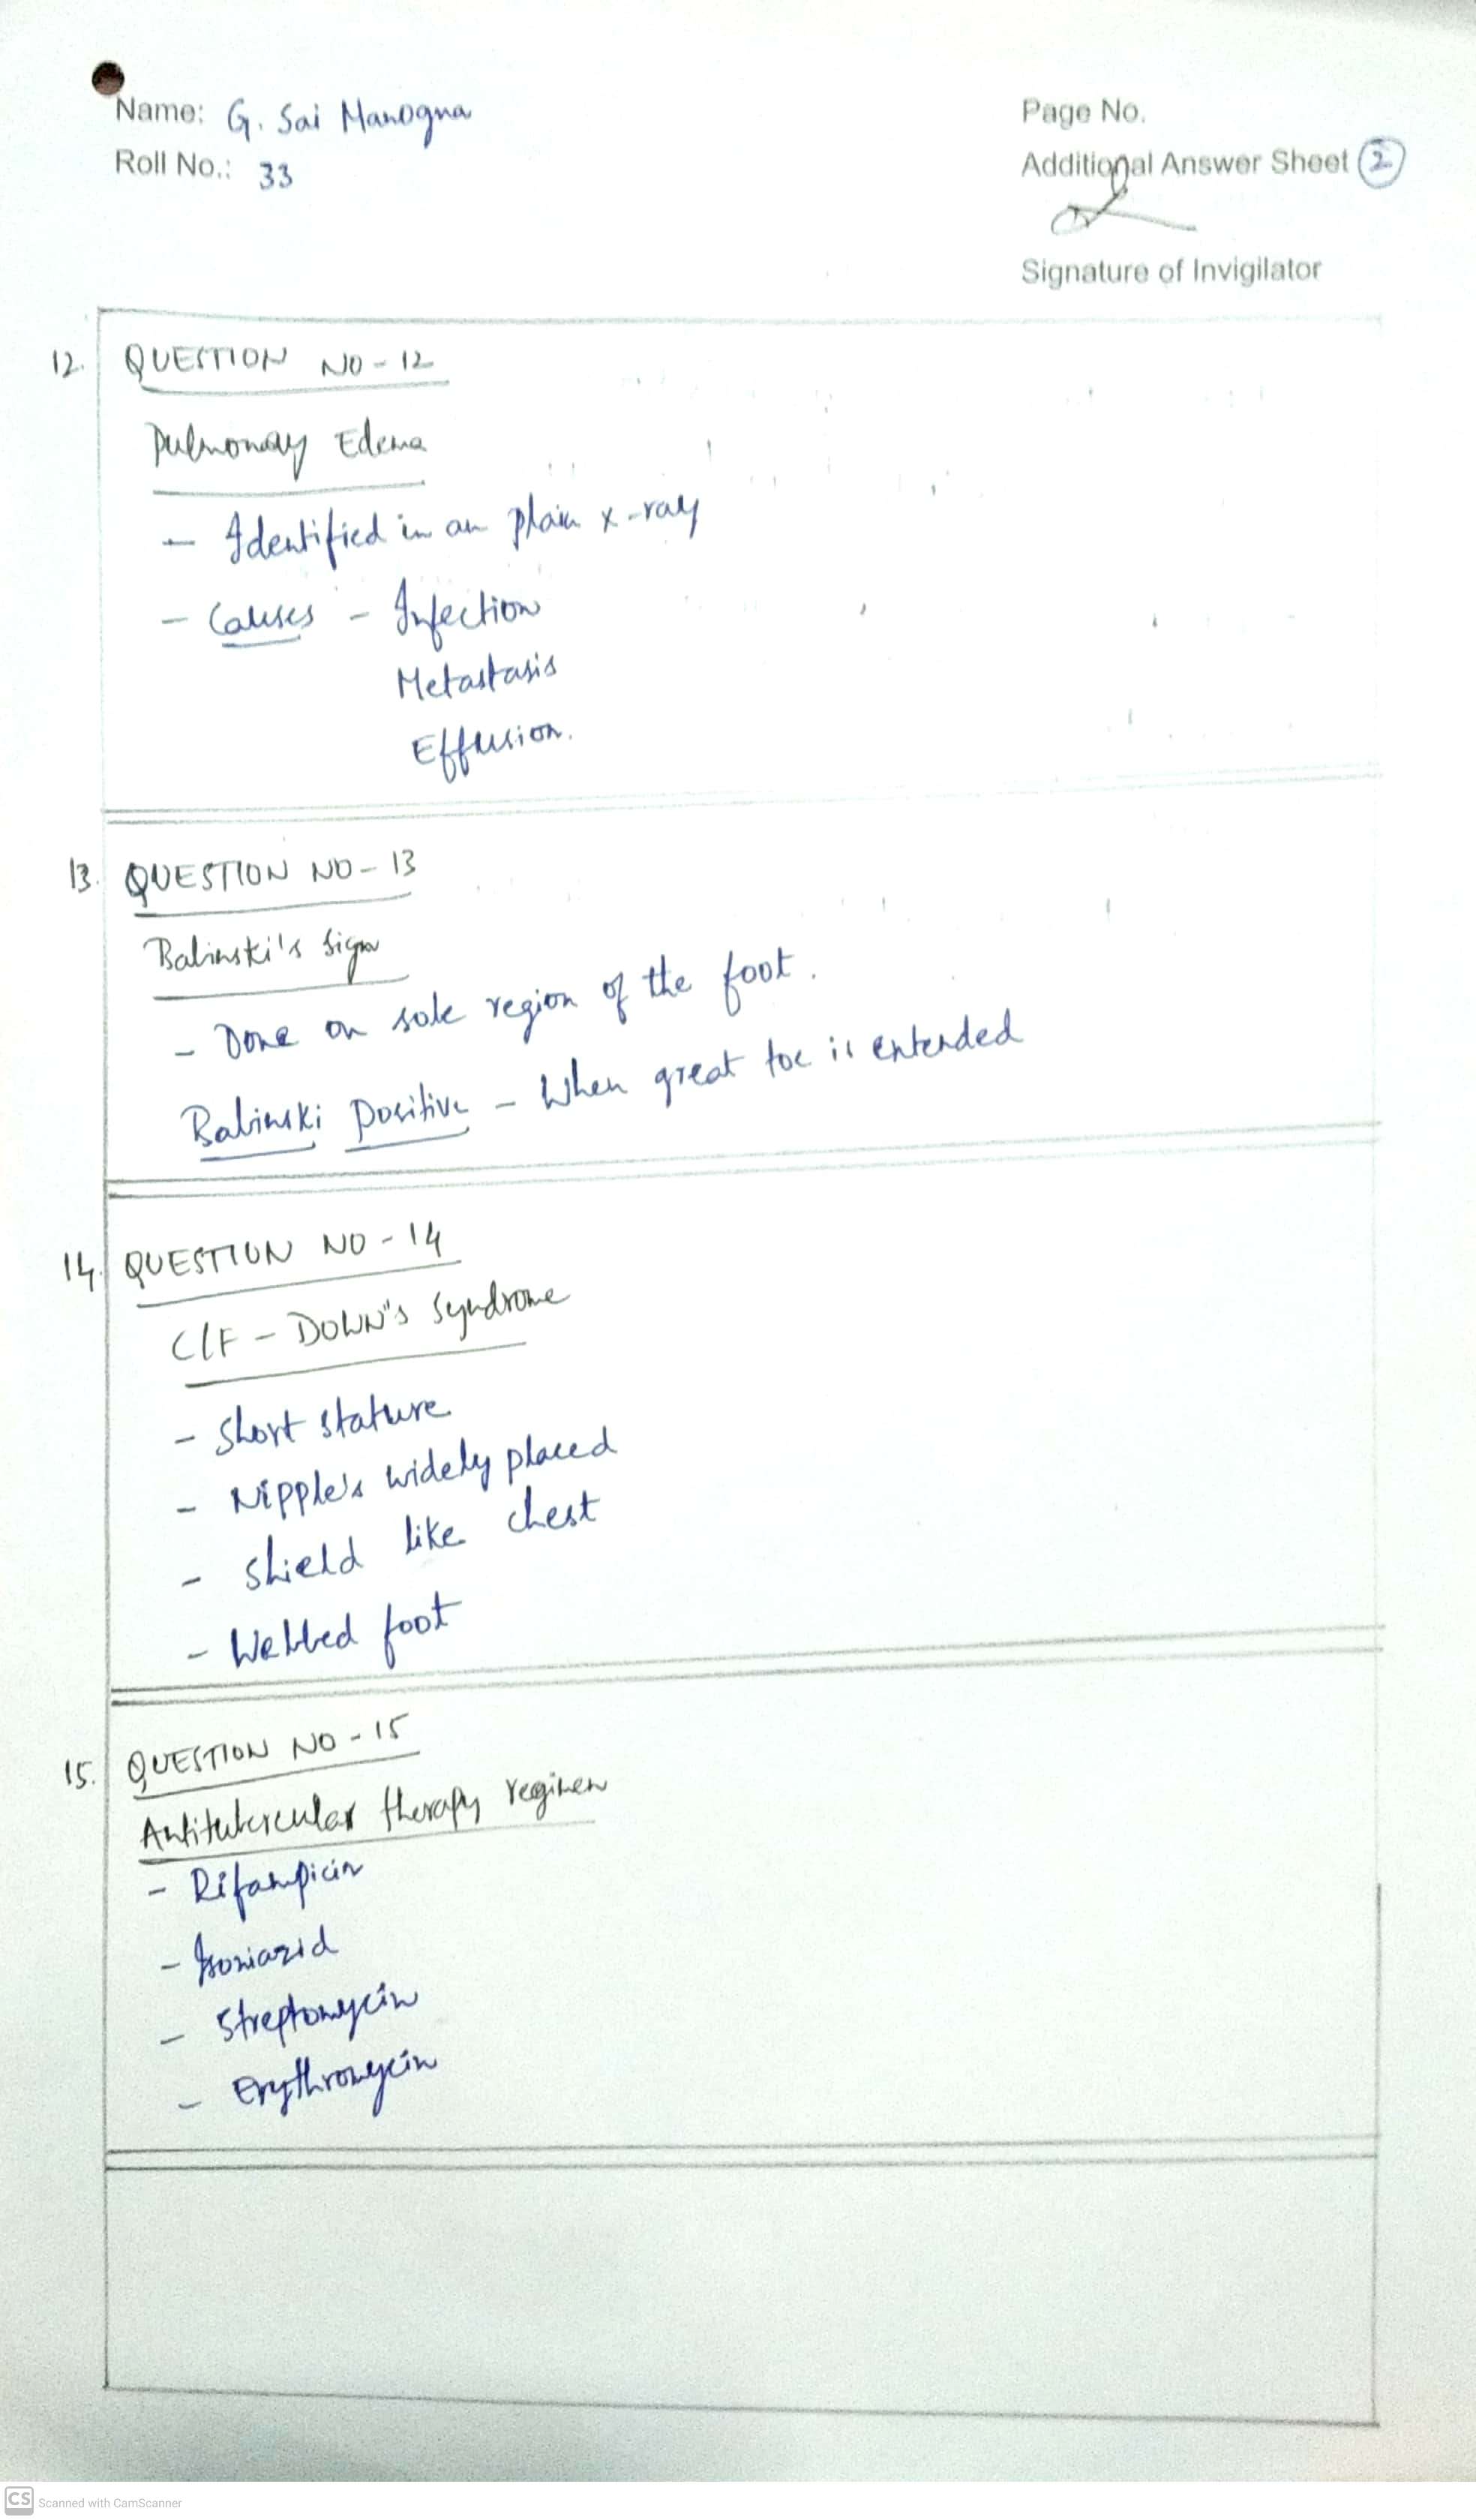 Name: G. Sai Manogna
Roll No.: 33
Page No.
Additional Answer Sheet 2
Signature of Invigilator
12. QUESTION NO - 12
Pulmonay Edema
- Identified in an plain x-ray
- Causes - Infection
Metastasis
Effusion.
13. QUESTION NO - 13
Babinski's sign
- Done on sole region of the foot.
Babinski Positive - When great toe is extended
14. QUESTION NO - 14
C/F - DOWN's Syndrome
- Short stature
- Nipple's widely placed
- shield like chest
- Webbed foot
15. QUESTION NO - 15
Antitubercular therapy regimen
- Rifampicin
- Isoniazid
- Streptomycin
- Erythromycin
CS Scanned with CamScanner